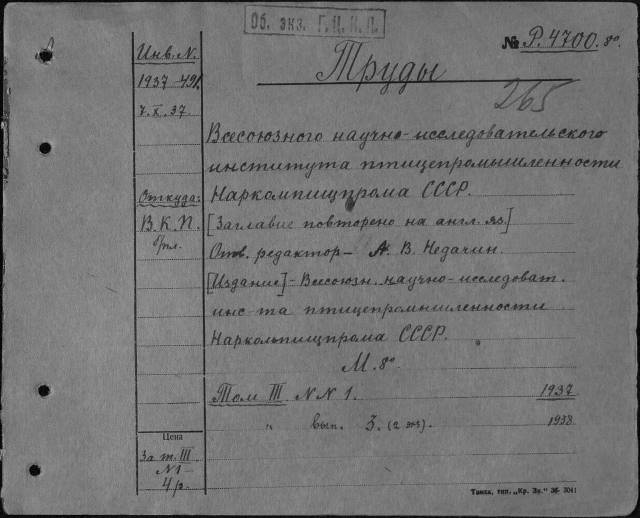 Об. экз. Г.Ц.К.П.
№ Р.4700.8°
Труды
265
Инв. N.
1937-491.
7.X.37.
Всесоюзного научно-исследовательского
института птицепромышленности
Откуда:
Наркомпищпрома СССР.
В.К.П.
[Заглавие повторено на англ. яз]
Отв. редактор – А. В. Недачин.
[Издание] - Всесоюзн. научно-исследоват.
инс-та птицепромышленности
Наркольпищпрома СССР.
М. 8°
Том III. N N 1. 1937
" вып. 3. (2 экз). 1938
Цена
За т. III
N 1 -
4 р.
Танка, тип. „Кр. Зн."